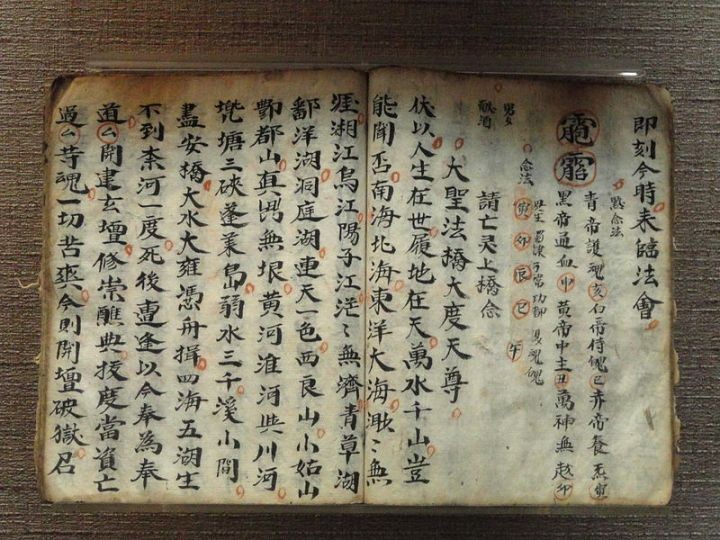 即刻今時来臨法會
點念法
青帝護魂亥白帝侍魄巳赤帝養炁寅
黑帝通血申黃帝中主丑萬神無越卯
念法
寅卯辰巳午
男女
獻酒
請亡灵上橋念
大聖法橋大度天尊
伏以人生在世履地在天萬水千山豈
能聞否南海北海東洋大海渺〻無
涯湘江烏江陽子江茫〻無濟青草湖
鄱洋湖洞庭湖連天一色西良山小姑山
酆都山真無垠黃河淮河共川河
塘三硤蓬莱島弱水三千溪小閘
盡安橋大水大雍憑舟揖四海五湖生
不到柰河一度死後重逢以今奉為奉
道〻開建玄壇修崇醮典拔度當資亡
過〻等魂一切苦爽今則開壇破獄召